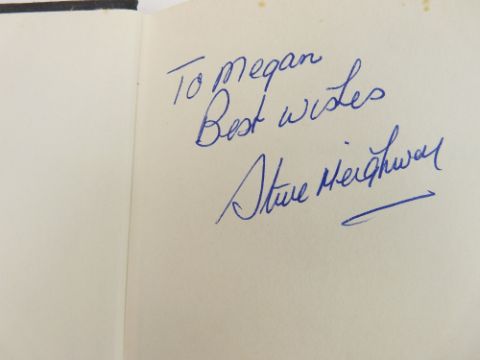 To Megan
Best wishes
Steve Heighway